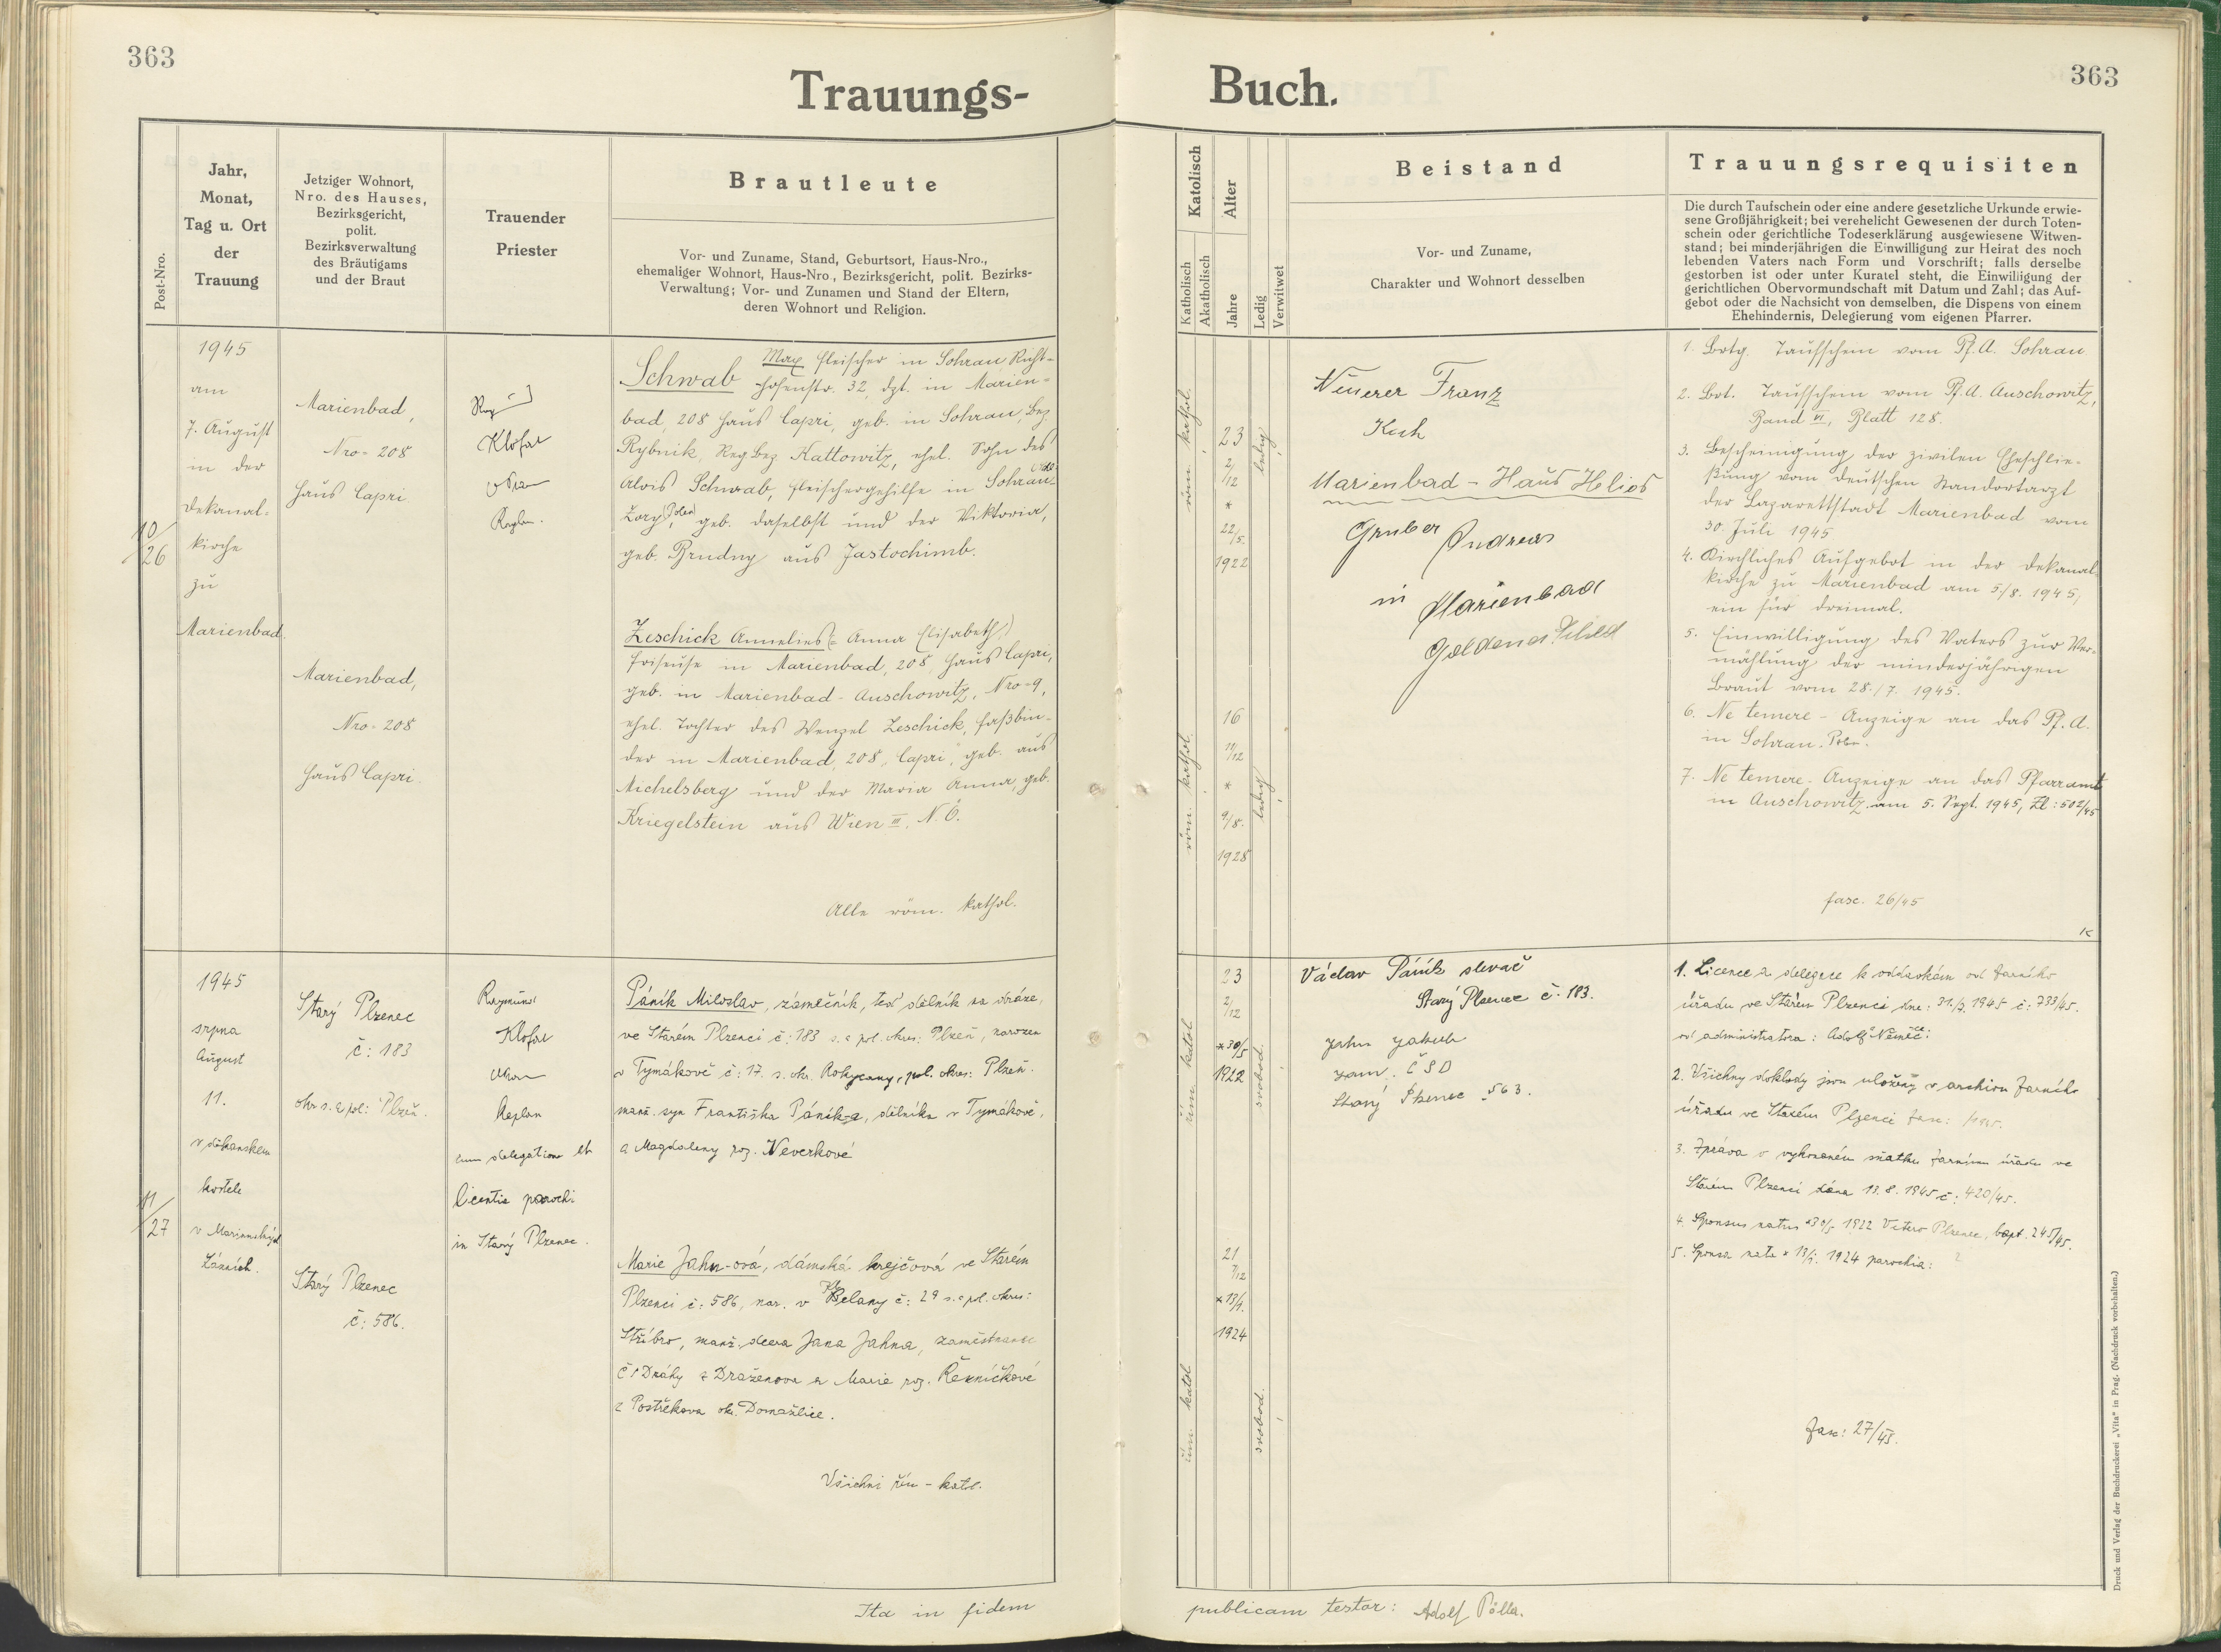 363
363
Trauungs-
Buch.
Post-Nro.
Jahr,
Monat,
Tag u. Ort
der
Trauung
Jetziger Wohnort,
Nro. des Hauses,
Bezirksgericht,
polit.
Bezirksverwaltung
des Bräutigams
und der Braut
Trauender
Priester
Brautleute
Vor- und Zuname, Stand, Geburtsort, Haus-Nro.,
ehemaliger Wohnort, Haus-Nro., Bezirksgericht, polit. Bezirks-
Verwaltung; Vor- und Zunamen und Stand der Eltern,
deren Wohnort und Religion.
Katolisch
Katholisch
Akatholisch
Alter
Jahre
Ledig
Verwitwet
Beistand
Vor- und Zuname,
Charakter und Wohnort desselben
Trauungsrequisiten
Die durch Taufschein oder eine andere gesetzliche Urkunde erwie-
sene Großjährigkeit; bei verehelicht Gewesenen der durch Toten-
schein oder gerichtliche Todeserklärung ausgewiesene Witwen-
stand; bei minderjährigen die Einwilligung zur Heirat des noch
lebenden Vaters nach Form und Vorschrift; falls derselbe
gestorben ist oder unter Kuratel steht, die Einwilligung der
gerichtlichen Obervormundschaft mit Datum und Zahl; das Auf-
gebot oder die Nachsicht von demselben, die Dispens von einem
Ehehindernis, Delegierung vom eigenen Pfarrer.
10/26
1945
am
7. August
in der
Dekanal-
kirche
zu
Marienbad.
Marienbad,
Nro = 208
Haus Capri
Marienbad,
Nro = 208
Haus Capri.
Klofat
Kaplan.
Schwab Max Fleischer in Sohrau, Richt-
hofenstr. 32, dzt. in Marien-
bad, 208 Haus Capri, geb. in Sohrau, Bez.
Rybnik, Reg Bez. Kattowitz, ehel. Sohn des
Alois Schwab, Fleischergehilfe in Sohrau-
Zory (Polen), geb. daselbst und der Viktoria,
geb. Brudny aus Jastochimb.
Zeschick Annelies (= Anna Elisabeth,)
Friseuse in Marienbad, 208, Haus Capri,
geb. in Marienbad - Auschowitz, Nro = 9,
ehel. Tochter des Wenzel Zeschick, Faßbin-
der in Marienbad, 208, "Capri", geb. aus
Michelsberg und der Maria Anna, geb.
Kriegelstein aus Wien III. N. Ö.
Alle röm. kathol.
röm. kathol.
23
2/12
*
22/5.
1922
ledig
röm. kathol.
16
11/12
*
9/8.
1928
ledig
Neuerer Franz
Koch
Marienbad - Haus Helios
Gruber Andreas
in Marienbad
Goldenes Schild
1. Botg. Taufschein vom Pf. A. Sohrau
2. Bot. Taufschein vom Pf. A. Auschowitz,
Band VI, Blatt 128.
3. Bescheinigung der zivilen Eheschlie-
ßung vom deutschen Standortarzt
der Lazarettstadt Marienbad vom
30. Juli 1945
4. Kirchliches Aufgebot in der Dekanal-
kirche zu Marienbad am 5./8. 1945,
ein für dreimal.
5. Einwilligung des Vaters zur Ver-
mählung der minderjährigen
Braut vom 28./7. 1945.
6. Ne temere - Anzeige an das Pf. A.
in Sohrau. Polen.
7. Ne temere - Anzeige an das Pfarramt
in Auschowitz am 5. Sept. 1945, Zl: 502/45
fasc. 26/45
11/27
1945
srpna
August
11.
v děkanském
kostele
v Mariánských
Lázních.
Starý Plzenec
č: 183
okr. s. a pol: Plzeň.
Starý Plzenec
č: 586.
Raymund
Klofat
Kaplan
cum delegatione et
licentia parochi
in Starý Plzenec.
Páník Miloslav, zámečník, teď dělník na dráze,
ve Starém Plzenci č: 183 s. a pol. okres: Plzeň, narozen
v Tymákově č: 17. s. okr. Rokycany, pol. okres: Plzeň.
manž. syn Františka Páníka, dělníka v Tymákově,
a Magdaleny roz. Neverkové
Marie Jahn-ová, dámská krejčová ve Starém
Plzenci č: 586, nar. v Kšelany č: 29 s. a pol. okres:
Stříbro, manž. dcera Jana Jahna, zaměstnance
Č S Dráhy z Draženova a Marie roz. Řezníčkové
z Postřekova okr. Domažlice.
Všichni řím - katol.
řím. katol
23
2/12
* 30/5
1922
svobod.
řím. katol
21
7/12
* 13/1.
1924
svobod.
Václav Páník slevač
Starý Plzenec č. 183.
Jahn Jakub
zam. ČSD
Starý Plzenec 563.
1. Licence a delegace k oddavkám od farního
úřadu ve Starém Plzenci dne: 31./7. 1945 č: 733/45.
od administrátora: Adolf Němec:
2. Všichny doklady jsou uloženy v archivu farního
úřadu ve Starém Plzenci fasc: /1945.
3. Zpráva o vykonaném sňatku farnímu úřadu ve
Starém Plzenci dána 13. 8. 1945 č: 420/45.
4. Sponsus natus *30/5 1922 Vetero Plzenec, bapt. 245/45.
5. Sponsa nata * 13/1. 1924 parochia: ?
fasc: 27/45.
Ita in fidem
publicam testor: Adolf Pölla.
Druck und Verlag der Buchdruckerei „Vita" in Prag. (Nachdruck vorbehalten.)